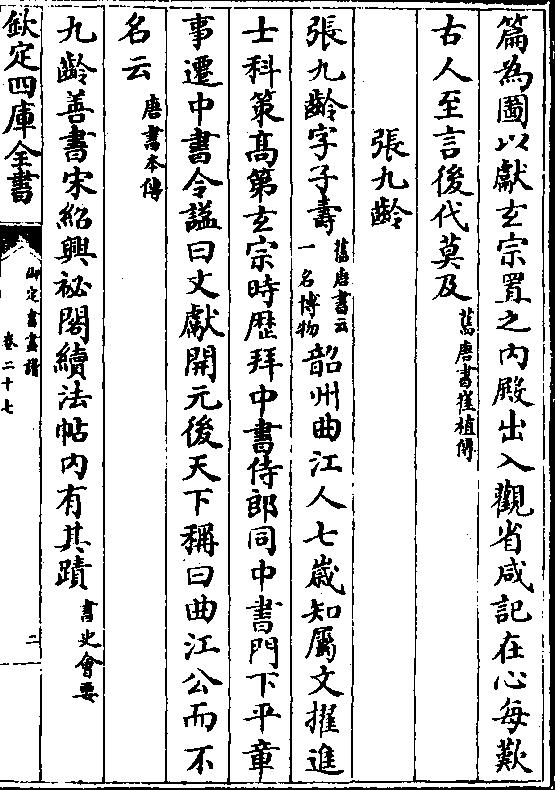 篇為圖以獻玄宗置之內殿出入觀省咸記在心每歎
古人至言後代莫及舊唐書崔植傳
張九齡
張九齡字子壽舊唐書云一名博物韶州曲江人七歲知屬文擢進
士科策高第玄宗時歷拜中書侍郎同中書門下平章
事遷中書令謚曰文獻開元後天下稱曰曲江公而不
名云唐書本傳
九齡善書宋紹興祕閣續法帖內有其蹟書史會要
欽定四庫全書
御定書畫譜
卷二十七
二